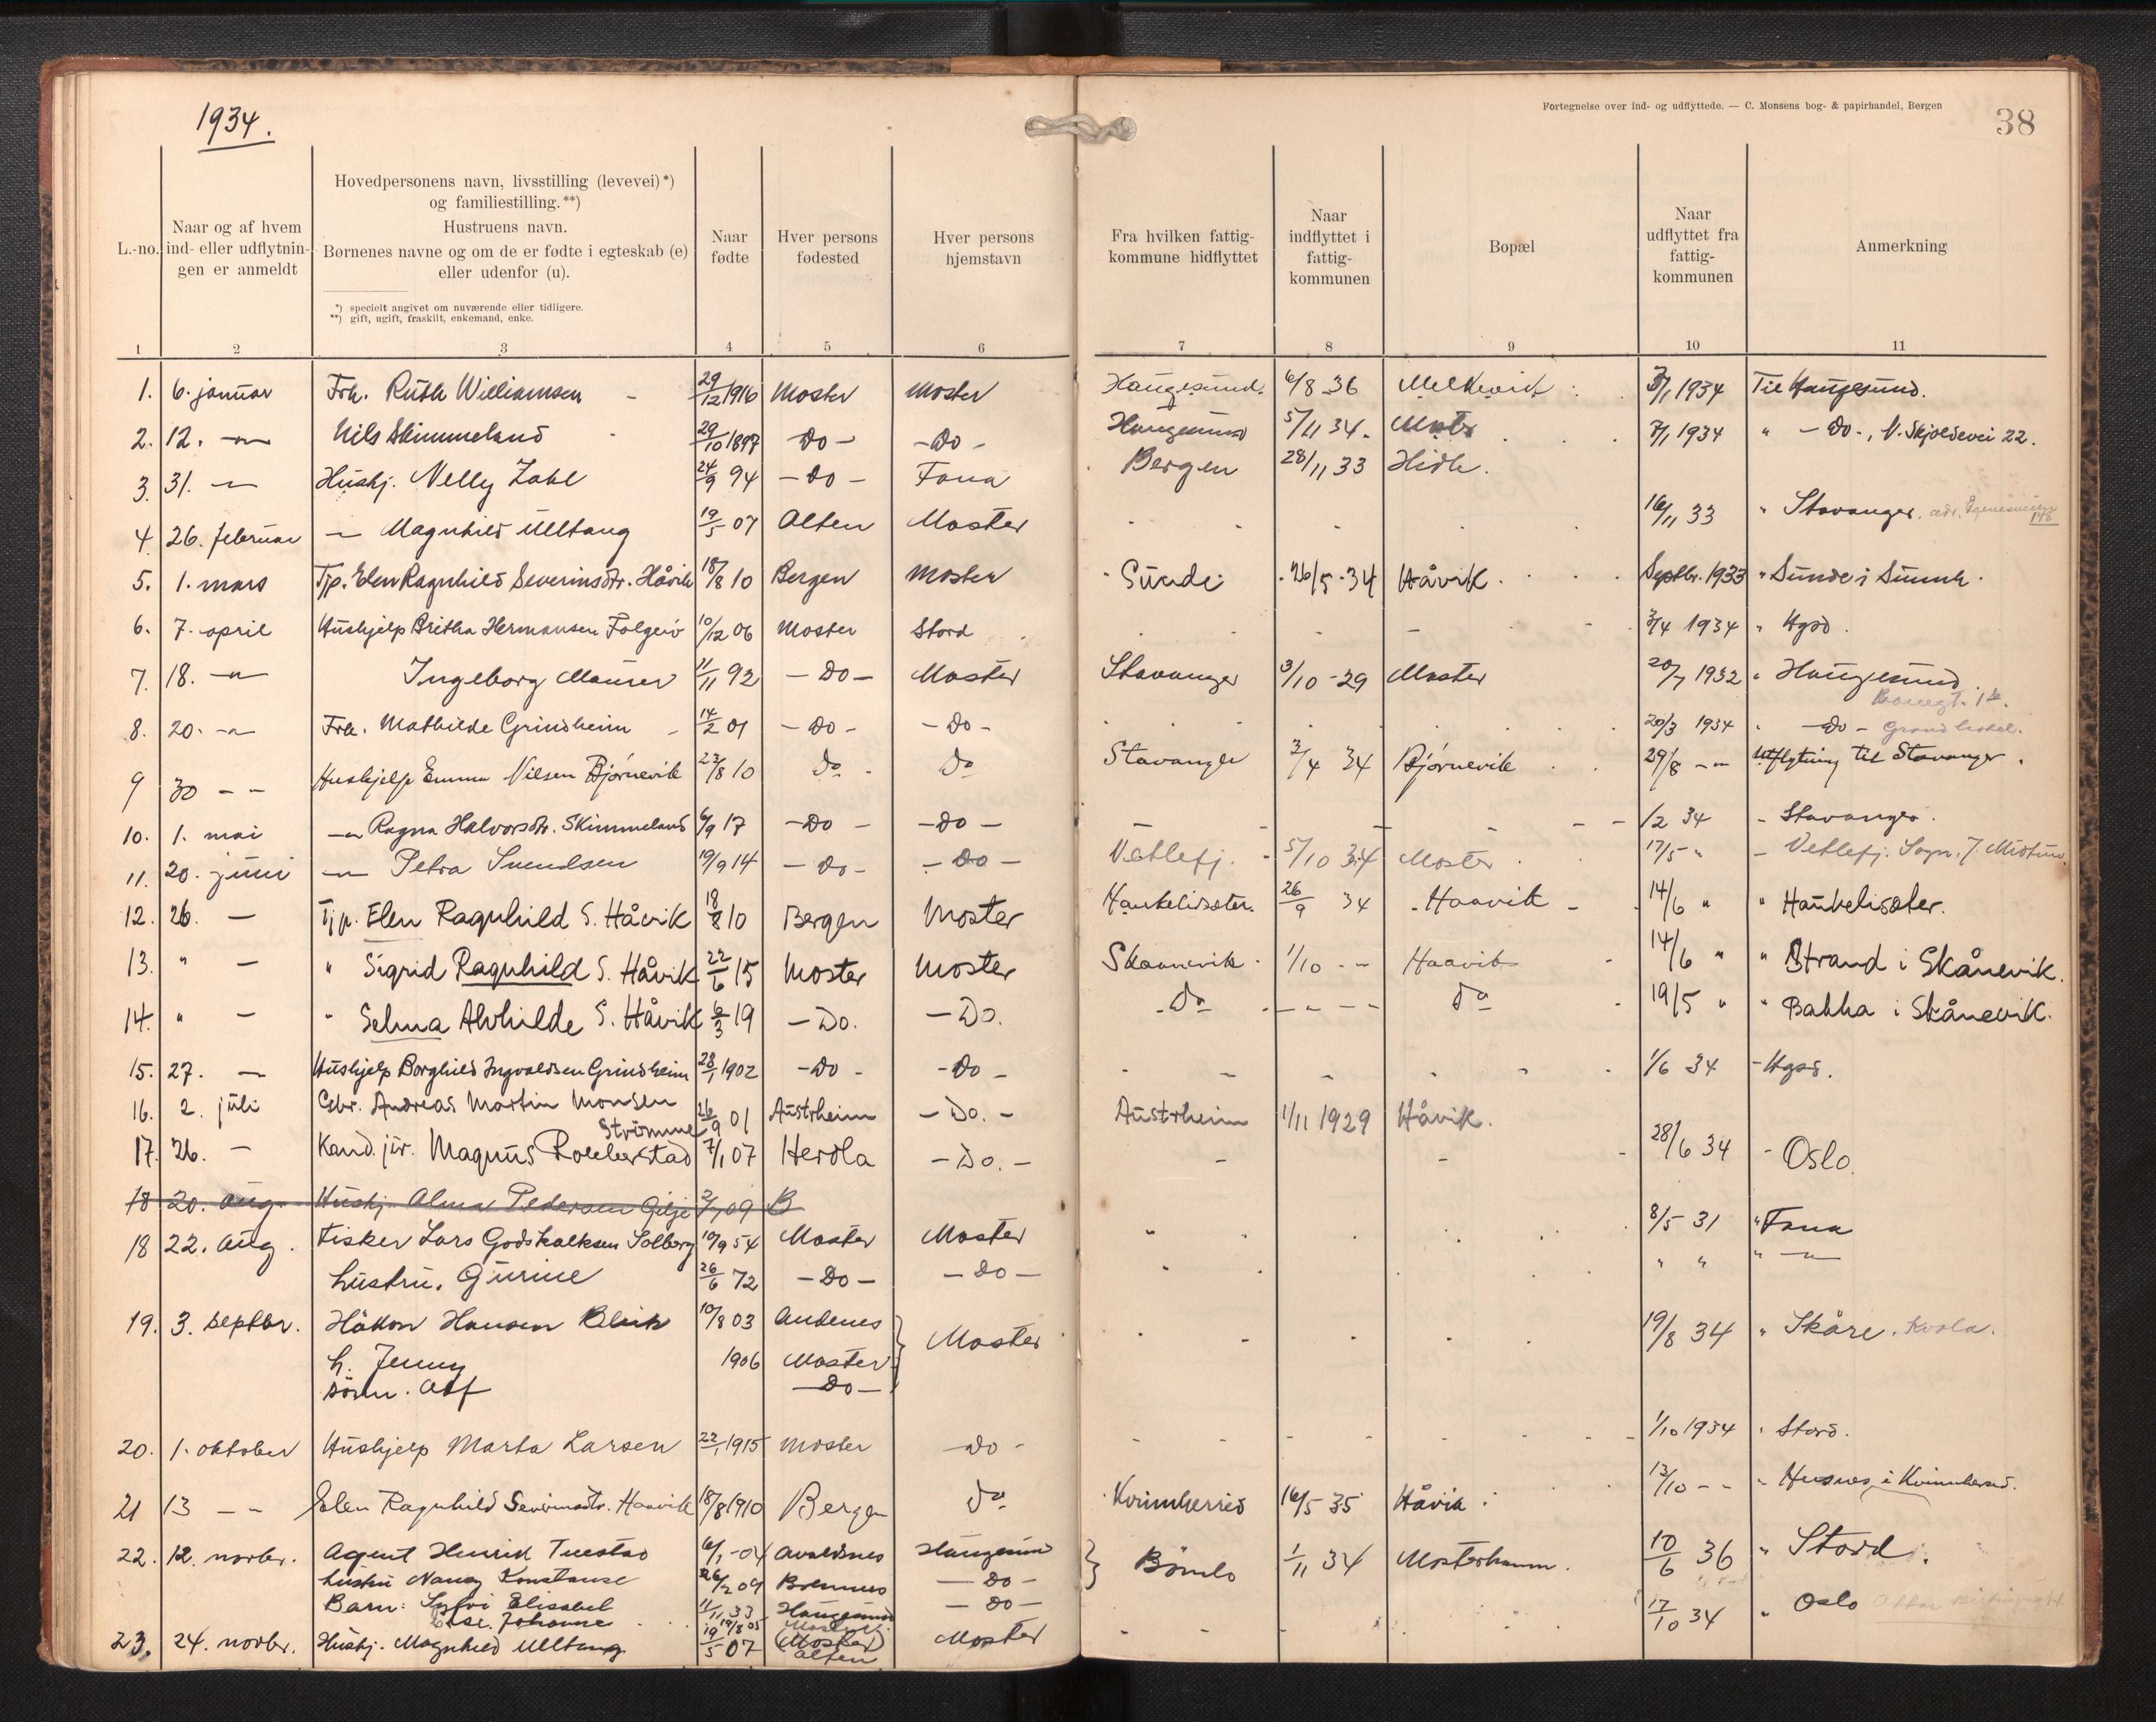 1934.
Fortegnelse over ind- og udflyttede. — C. Monsens bog- & papirhandel, Bergen
38
L.-no.
Naar og af hvem
ind- eller udflytnin-
gen er anmeldt
Hovedpersonens navn, livsstilling (levevei)*)
og familiestilling.**)
Hustruens navn.
Børnenes navne og om de er fødte i egteskab (e)
eller udenfor (u).
*) specielt angivet om nuværende eller tidligere.
**) gift, ugift, fraskilt, enkemand, enke.
Naar
fødte
Hver persons
fødested
Hver persons
hjemstavn
Fra hvilken fattig-
kommune hidflyttet
Naar
indflyttet i
fattig-
kommunen
Bopæl
Naar
udflyttet fra
fattig-
kommunen
Anmerkning
1 2 3 4 5 6 7 8 9 10 11
1. 6. januar Frk. Ruth Williamsen 29/12 1916 Moster Moster Haugesund. 6/8 36 Melkevik 7/1 1934 Til Haugesund.
2. 12. —"— Nils Skimmeland 29/10 1897 – Do – – Do – Haugesund 5/11 34. Mostr 7/1 1934 " – Do –, N. Skjoldevei 22.
3. 31. —"— Hushj. Nelly Zahl 24/9 94 – Do – Fana Bergen 28/11 33 Hidle.
4. 26. februar —"— Magnhild Ulltang 19/5 07 Alten Moster 16/11 33 " Stavanger. adr. 148
5. 1. mars Tjp. Elen Ragnhild Severinsdtr. Håvik 18/8 10 Bergen Moster Sunde 26/5 - 34 Håvik Septbr. 1933 " Sunde i Sunnh.
6. 7. april Hushjelp Britha Hermansen Folgerö 10/12 06 Moster Stord 3/4 1934 " Hgsd.
7. 18. —"— Ingeborg Maurer 11/11 92 – Do – Moster Stavanger 3/10 - 29 Moster 20/7 1932 " Haugesund.
8. 20. —"— Frk. Mathilde Grindheim 14/2 01 – Do – – Do – 20/3 1934 " – Do – Grand hotel.
9 30 – – Hushjelp Emma Nilsen Bjørnevik 23/8 10 Do Do Stavanger 3/4 34 Bjørnevik 29/8 – – Utflytning til Stavanger.
10. 1. mai —"— Ragna Halvorsdtr. Skimmeland 6/9 17 – Do – – Do – 1/2 34 – Stavanger.
11. 20. juni —"— Petra Svendsen 19/9 14 – Do – – Do – Vetlefj. 5/10 34 Moster 17/5 " – Vetlefj. Sogn. J. Midtun.
12. 26. — Tjp. Elen Ragnhild S. Håvik 18/8 10 Bergen Moster Haukelisæter. 26/9 34 Haavik 14/6 " " Haukelisæter.
13. " — " Sigrid Ragnhild S. Håvik 22/6 15 Moster Moster Skaanevik 1/10 – – Haavik 14/6 " " Strand i Skånevik.
14. " — " Selma Alvhilde S. Håvik 6/3 19 – Do. – Do. Do – – – – Do 19/5 " " Bakka i Skånevik.
15. 27. — Hushjelp Borghild Ingvaldsen Grindheim 28/1 1902 – Do – – Do – 1/6 34 – Hgsd.
16. 2. juli Andreas Martin Monsen
Strömme 26/9 01 Austrheim – Do. – Austrheim 1/11 1929 Håvik.
17. 26. – Kand. jur. Magnus 7/1 07 Herdla – Do. – 28/6 34 – Oslo.
18 20. aug. Hushj. Alma Pedersen Gilje 2/7 09 B
18 22. aug. Fisker Lars Godskalksen Solberg 10/9 54 Moster Moster 8/5 31 " Fana
hustru. Gurine 26/6 72 – Do – – Do – " " " —"—
19. 3. septbr. Håkon Hansen Blink 10/8 03 Andenes Moster 19/8 34 " Skåre. Kvala.
h. Jenny 1906 Moster
sönn. Alf – Do –
20. 1. oktober Hushjelp Marta Larsen 22/1 1915 Moster – Do – 1/10 1934 " Stord.
21 13 – – Elen Ragnhild Severinsdtr. Haavik 18/8 1910 Bergen Do Kvinnherred 16/5 35 Håvik 13/10 – – " Husnes i Kvinnherad.
22. 12. novbr. Agent Henrik Tuestad 6/1 - 04 Avaldsnes Haugesund Bömlo 1/11 34 Mosterhamn. 10/6 36 " Stord.
hustru Nancy Konstanse 26/2 09 Bremnes – Do –
Barn: Sylvi Elisabet 11/11 33 Haugesund – Do –
Else Johanne 19/8 05
23. 24. novbr. Hushj. Magnhild Ulltang 19/5 07 (Moster) Alten Moster 17/10 34 " Oslo